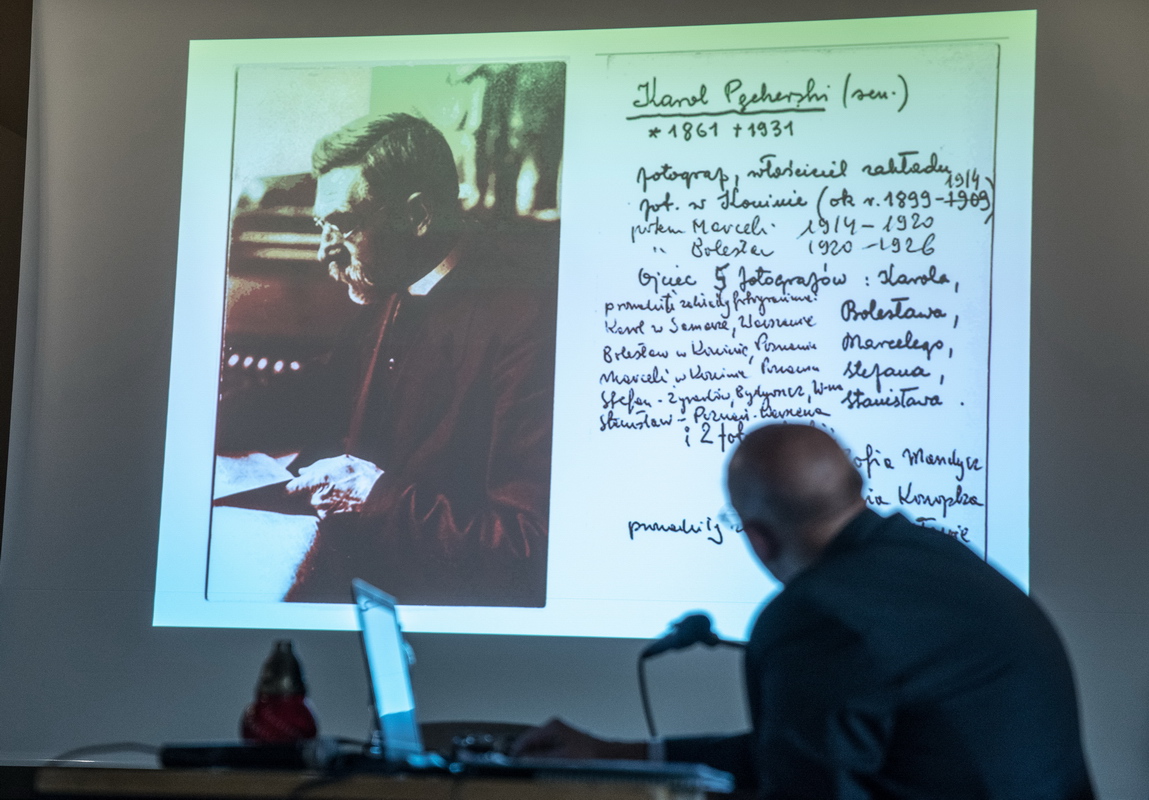 Karol Pęcherski (sen.)
* 1861 + 1931
fotograf, właściciel zakładu
fot. w Koninie (ok r. 1899-1909) 1914
potem Marceli 1914 - 1920
" Bolesław 1920 - 1926
Ojciec 5 fotografów : Karola,
prowadzili zakłady fotograficzne:
Bolesława,
Karol w Samarze, Warszawie
Marcelego,
Bolesław w Koninie, Poznaniu
Marceli w Koninie Poznaniu
Stefana,
Stefan - Żyrardów, Bydgoszcz, W-wa
Stanisława.
Stanisław - Poznań - Warszawa
i 2 fot
ofia Mandysz
ia Konopka
prowadziły